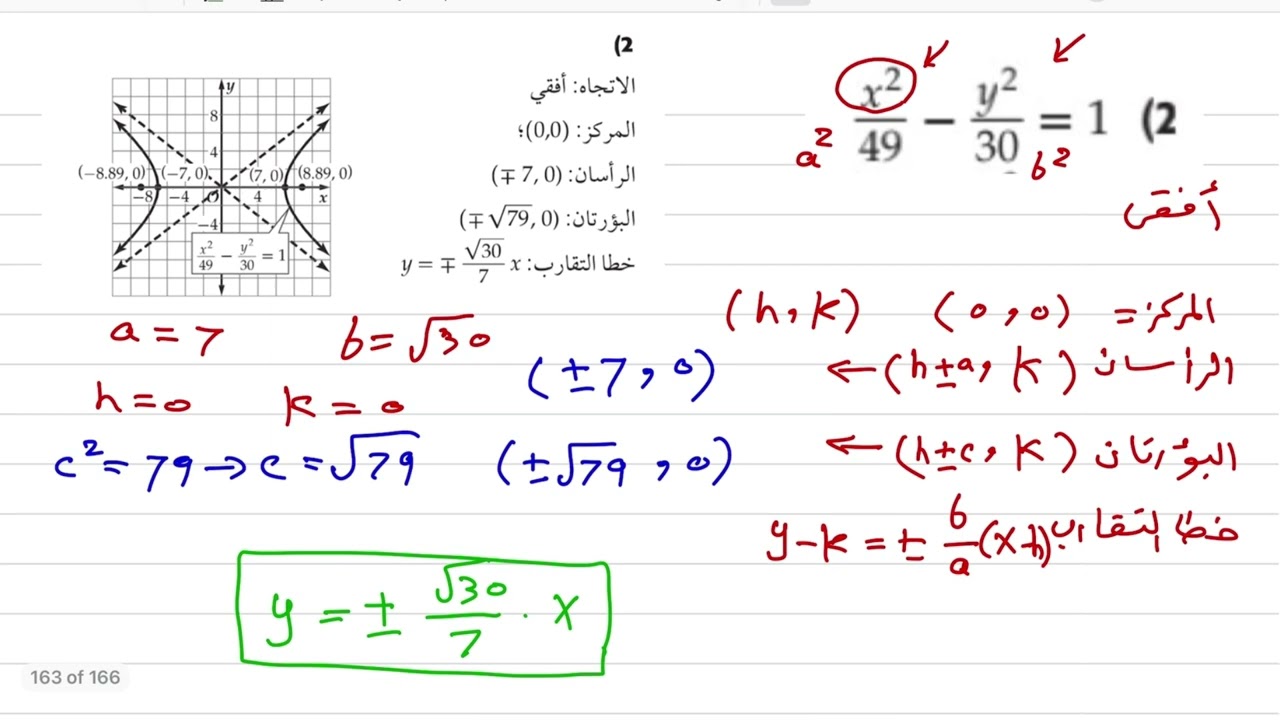 (2
الاتجاه: أفقي
المركز: (0,0)؛
الرأسان: (∓ 7, 0)
البؤرتان: (∓√79, 0)
خطا التقارب: y = ∓ √30/7 x
y
8
4
(−8.89, 0) (−7, 0) (7, 0) (8.89, 0)
−8 −4 O 4 x
−4
x²/49 − y²/30 = 1
(2 x²/49 − y²/30 = 1
a² b²
أفقي
المركز = (0, 0) (h, k)
الرأسان (h±a, k) ← (±7, 0)
البؤرتان (h±c, k) ← (±√79, 0)
خطا التقارب y−k = ± b/a (x−h)
a = 7 b = √30
h = 0 k = 0
c² = 79 → c = √79
y = ± √30/7 · x
163 of 166